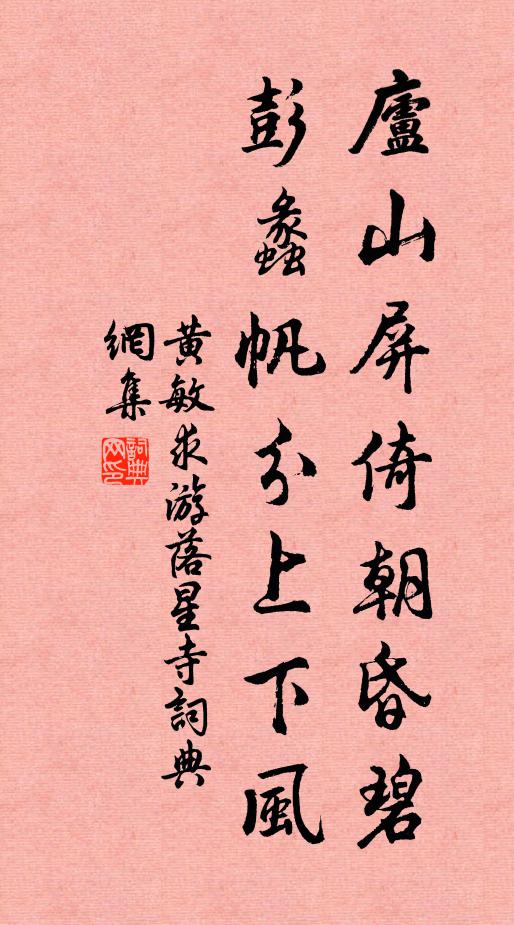 廬山屏倚朝昏碧
彭蠡帆分上下風
黃敏求游落星寺詞典
網集
詞典網印